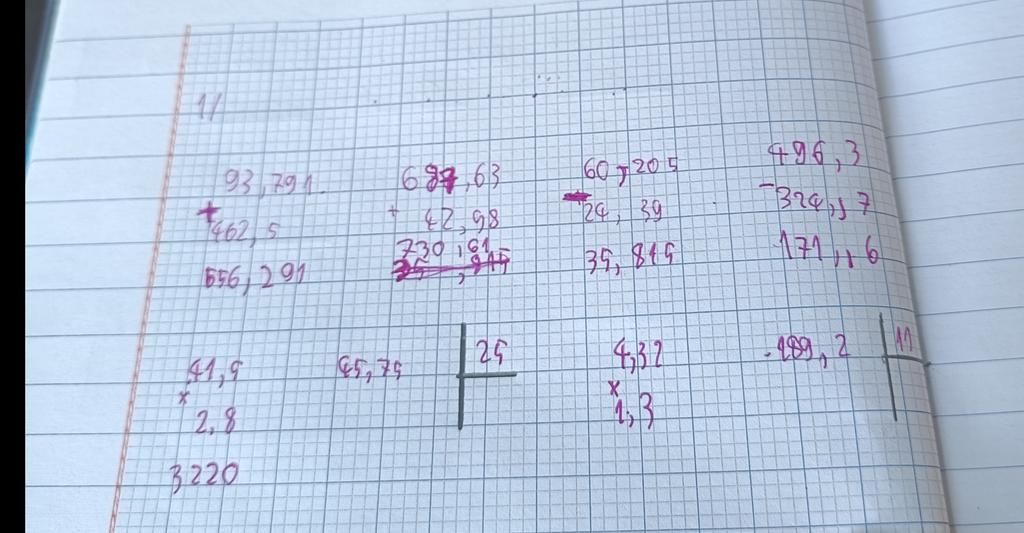 1/
93,791 687,63 60,205 496,3
+ 462,5 + 42,98 - 24,39 - 324,7
556,291 730,61 35,815 171,6
41,5 45,75 25 4,32 189,2 11
x 2,8 x 1,3
3220